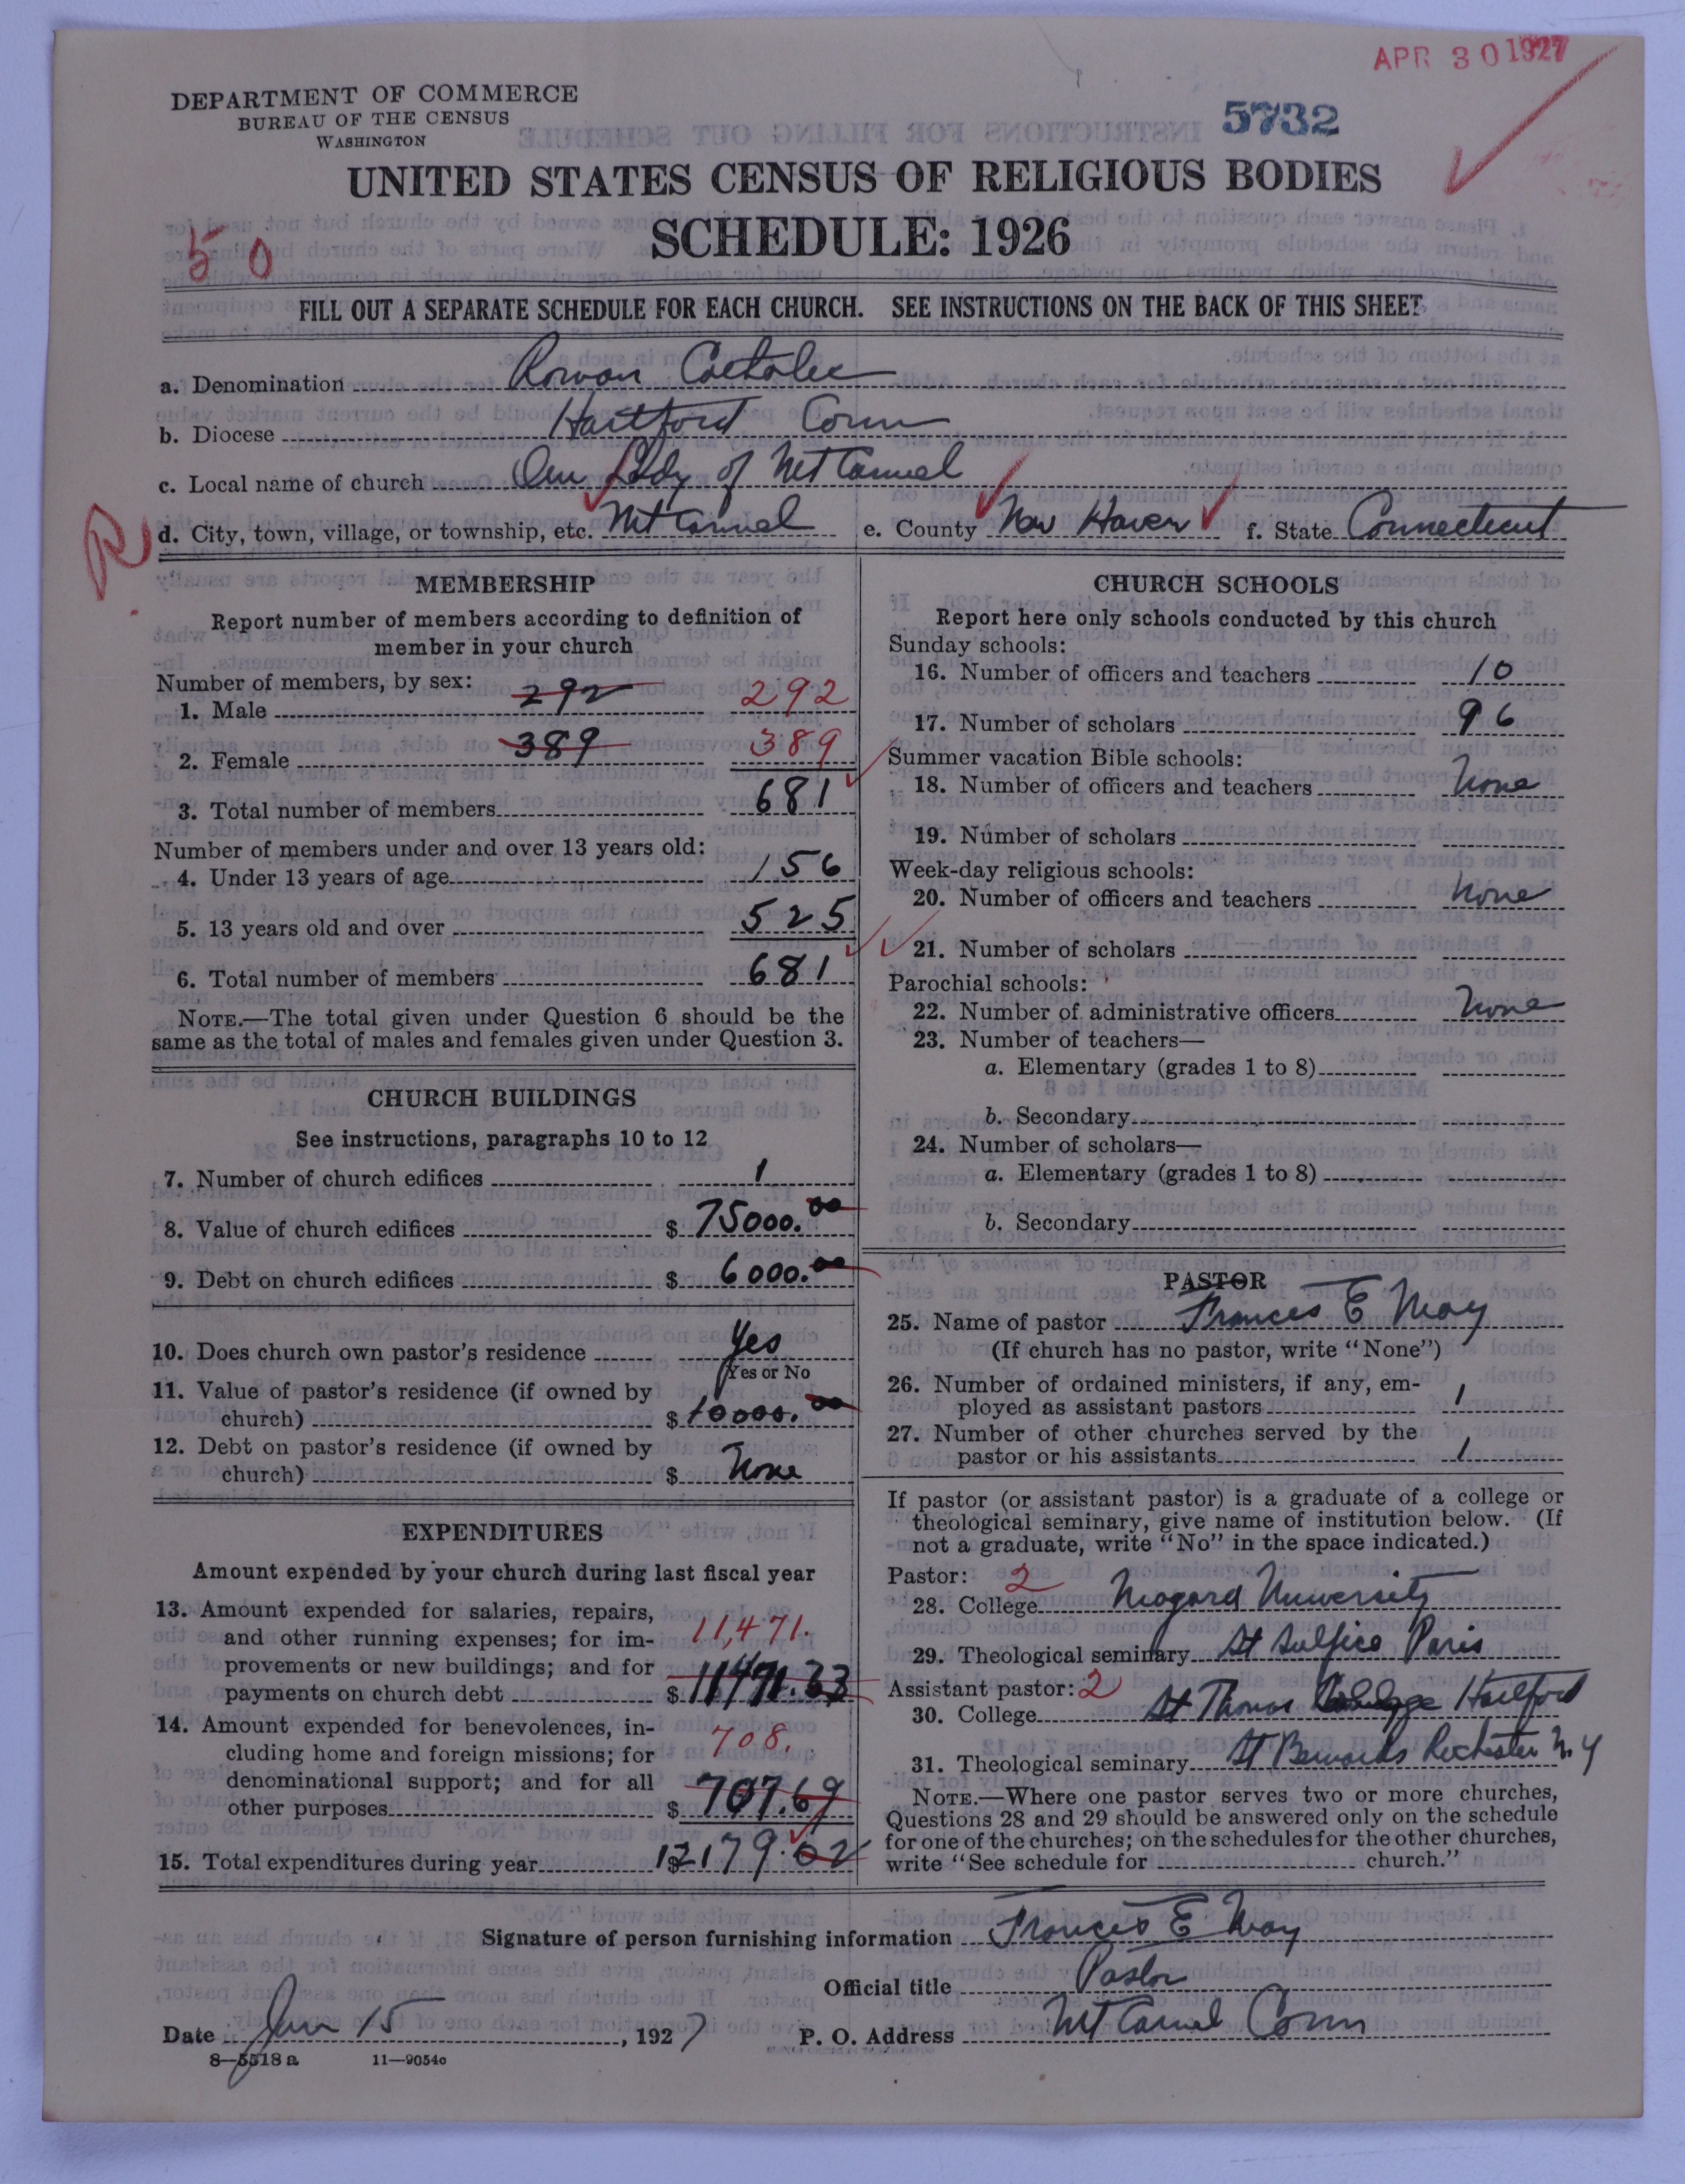 APR 30 1927
DEPARTMENT OF COMMERCE
BUREAU OF THE CENSUS
WASHINGTON
5732
UNITED STATES CENSUS OF RELIGIOUS BODIES
SCHEDULE: 1926
50
FILL OUT A SEPARATE SCHEDULE FOR EACH CHURCH. SEE INSTRUCTIONS ON THE BACK OF THIS SHEET
a. Denomination Roman Catholic
b. Diocese Hartford Conn
c. Local name of church Our Lady of Mt Carmel
R
d. City, town, village, or township, etc. Mt Carmel e. County New Haven f. State Connecticut
MEMBERSHIP
Report number of members according to definition of
member in your church
Number of members, by sex:
1. Male 292 292
2. Female 389 389
3. Total number of members 681
Number of members under and over 13 years old:
4. Under 13 years of age 156
5. 13 years old and over 525
6. Total number of members 681
NOTE.—The total given under Question 6 should be the
same as the total of males and females given under Question 3.
CHURCH BUILDINGS
See instructions, paragraphs 10 to 12
7. Number of church edifices 1
8. Value of church edifices $ 75000.00
9. Debt on church edifices $ 6000.00
10. Does church own pastor's residence Yes
Yes or No
11. Value of pastor's residence (if owned by
church) $ 10000.00
12. Debt on pastor's residence (if owned by
church) $ None
EXPENDITURES
Amount expended by your church during last fiscal year
13. Amount expended for salaries, repairs,
and other running expenses; for im-
11,471.
provements or new buildings; and for
payments on church debt $ 11471.33
14. Amount expended for benevolences, in-
cluding home and foreign missions; for
708.
denominational support; and for all
other purposes $ 707.69
15. Total expenditures during year $ 12179.02
CHURCH SCHOOLS
Report here only schools conducted by this church
Sunday schools:
16. Number of officers and teachers 10
17. Number of scholars 96
Summer vacation Bible schools:
18. Number of officers and teachers None
19. Number of scholars
Week-day religious schools:
20. Number of officers and teachers None
21. Number of scholars
Parochial schools:
22. Number of administrative officers None
23. Number of teachers—
a. Elementary (grades 1 to 8)
b. Secondary
24. Number of scholars—
a. Elementary (grades 1 to 8)
b. Secondary
PASTOR
25. Name of pastor Frances E May
(If church has no pastor, write "None")
26. Number of ordained ministers, if any, em-
ployed as assistant pastors 1
27. Number of other churches served by the
pastor or his assistants 1
If pastor (or assistant pastor) is a graduate of a college or
theological seminary, give name of institution below. (If
not a graduate, write "No" in the space indicated.)
Pastor: 2
28. College Niagara University
29. Theological seminary St Sulpice Paris
Assistant pastor: 2
30. College St Thomas Hartford
31. Theological seminary St Bernards Rochester N. Y
NOTE.—Where one pastor serves two or more churches,
Questions 28 and 29 should be answered only on the schedule
for one of the churches; on the schedules for the other churches,
write "See schedule for church."
Signature of person furnishing information Frances E May
Official title Pastor
Date Jan 15, 1927 P. O. Address Mt Carmel Conn
8—5518 a 11—9054o